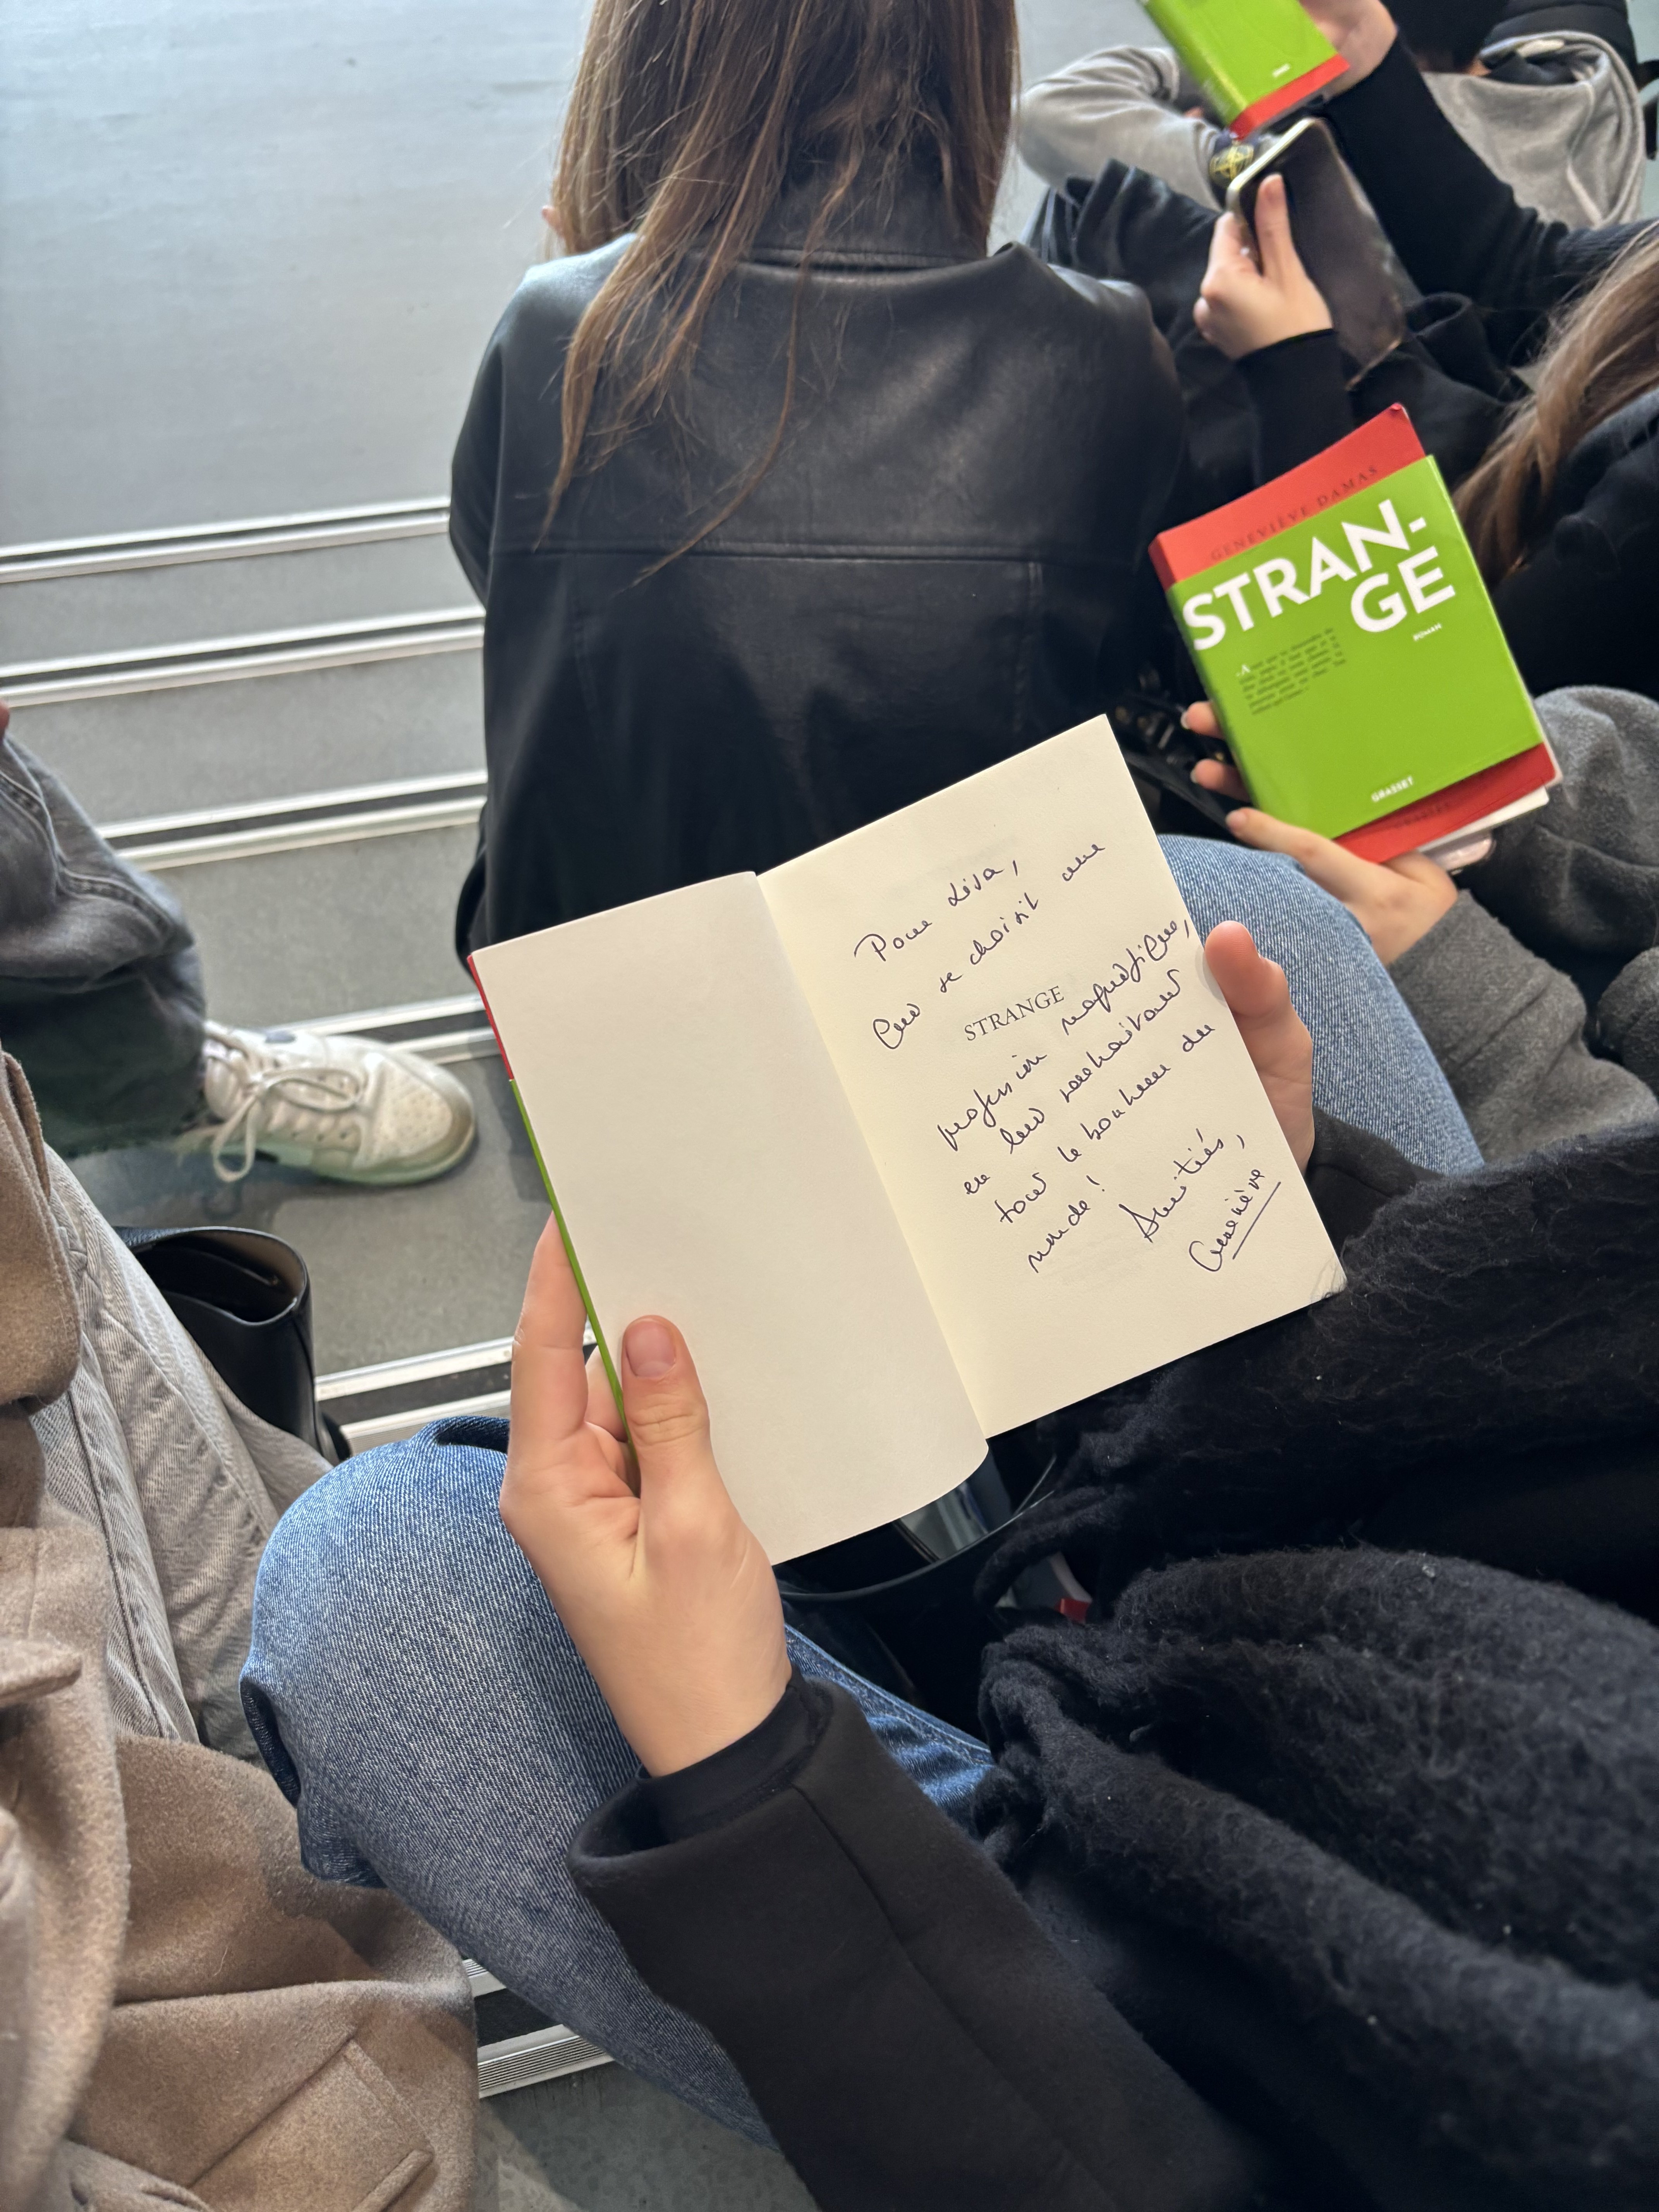 GENEVIÈVE DAMAS
STRAN-
GE
ROMAN
GRASSET
Pour Lisa,
qui se choisit une
STRANGE
profession magnifique,
en lui souhaitant
tout le bonheur du
monde !
Amitiés,
Geneviève